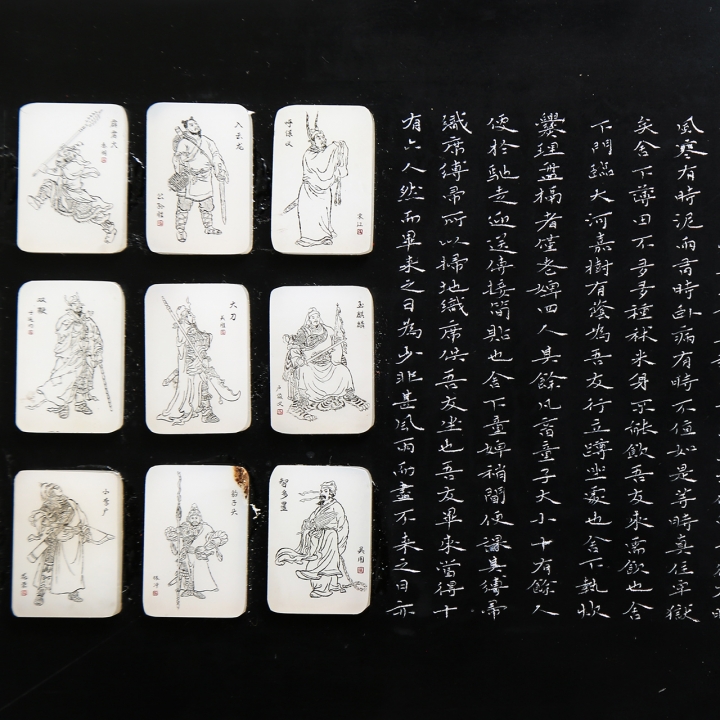 霹雳火
秦明
入云龙
公孙胜
呼保义
宋江
双鞭
呼延灼
大刀
关胜
玉麒麟
卢俊义
小李广
花荣
豹子头
林冲
智多星
吴用
風寒有時泥雨有時卧病有時不值如是等時真住牢獄
矣舍下薄田不多多種秫米身不能飲吾友來需飲也舍
下門臨大河嘉樹有蔭為吾友行立蹲坐處也舍下執炊
爨理盤槅者僅老婢四人其餘凡畜童子大小十有餘人
便於馳走迎送傳接簡貼也舍下童婢稍閒便課其縛帚
織席縛帚所以掃地織席供吾友坐也吾友畢來當得十
有六人然而畢來之日為少非甚風雨而盡不來之日亦